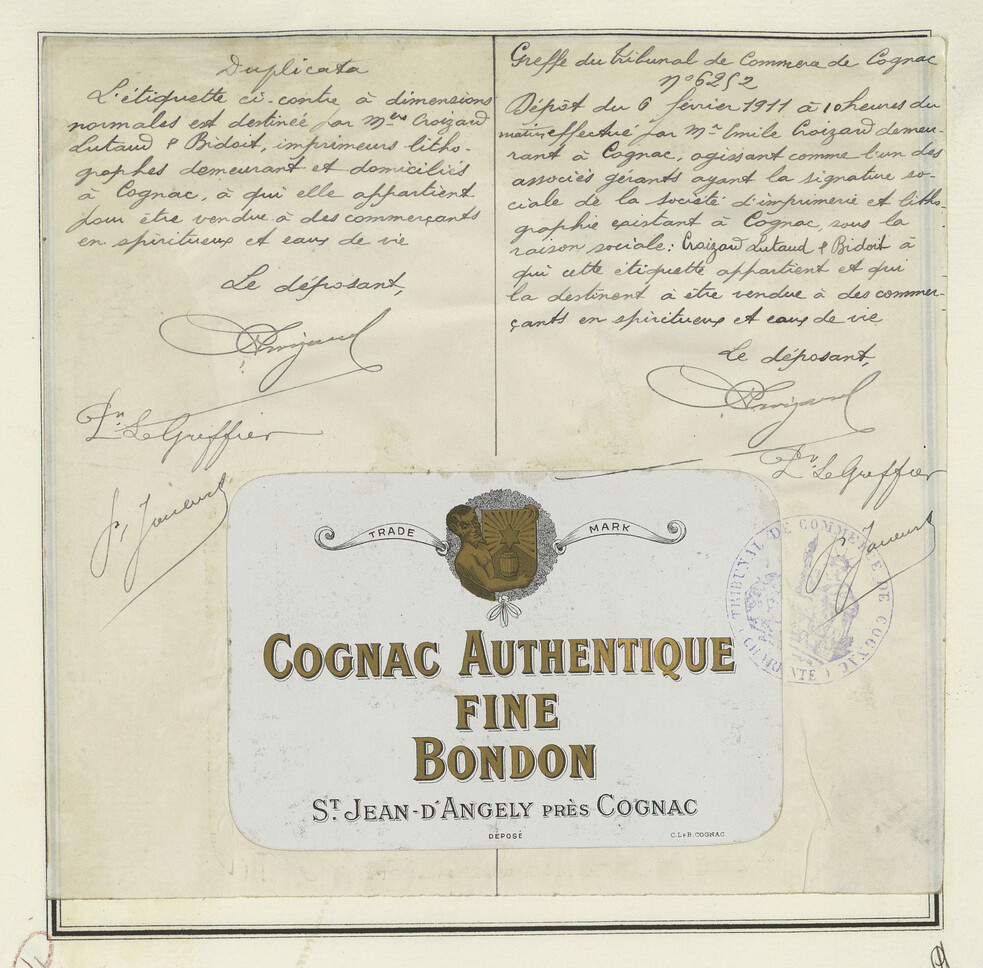 Duplicata
L'étiquette ci-contre à dimensions
normales est destinée par Mers Croizard
Lutaud & Bidoit, imprimeurs litho-
graphes demeurant et domiciliés
à Cognac, à qui elle appartient
pour être vendue à des commerçants
en spiritueux et eaux de vie
Le déposant,
Croizard
Pr Le Greffier
Greffe du tribunal de Commerce de Cognac
no 6252
Dépôt du 6 février 1911 à 10 heures du
matin effectué par Mr Emile Croizard demeu-
rant à Cognac, agissant comme l'un des
associés gérants ayant la signature so-
ciale de la société d'imprimerie et litho-
graphie existant à Cognac, sous la
raison sociale: Croizard Lutaud & Bidoit à
qui cette étiquette appartient et qui
la destinent à être vendue à des commer-
çants en spiritueux et eaux de vie
Le déposant,
Croizard
Pr Le Greffier
TRIBUNAL DE COMMERCE DE COGNAC
CHARENTE
TRADE MARK
COGNAC AUTHENTIQUE
FINE
BONDON
ST. JEAN-D'ANGELY PRÈS COGNAC
DÉPOSÉ
C.L & B. COGNAC